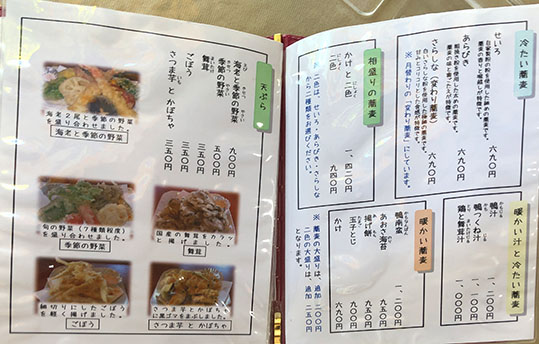 冷たい蕎麦
せいろ 六九〇円
あらびき 六九〇円
さらしな（変わり蕎麦） 六九〇円
※月替わりの「変わり蕎麦」にしています。
相盛りの蕎麦
二色 九四〇円
かけと二色 一、四二〇円
※二色は、せいろ・あらびき・さらしな
から二種類をお選びください。
暖かい汁と冷たい蕎麦
鴨汁 一、二〇〇円
鴨つくね汁 一、〇〇〇円
鶏と舞茸汁 一、〇〇〇円
暖かい蕎麦
鴨南蛮 一、二〇〇円
あおさ海苔 九五〇円
揚げ餅 九五〇円
玉子とじ 七五〇円
かけ 六九〇円
※蕎麦の大盛りは、追加 二〇〇円
二色の大盛りは、追加 二五〇円
となります。
天ぷら
海老と季節の野菜 九〇〇円
季節の野菜 五五〇円
舞茸 五五〇円
ごぼう 三五〇円
さつま芋 と かぼちゃ 三五〇円
海老２尾と季節の野菜
を盛り合わせました。
海老と季節の野菜
旬の野菜（７種類程度）
を盛り合わせました。
季節の野菜
国産の舞茸をカラッ
と揚げました。
舞茸
細切りにしたごぼう
を軽く揚げました。
ごぼう
さつま芋とかぼちゃ
に黒ゴマをまぶしました。
さつま芋 と かぼちゃ